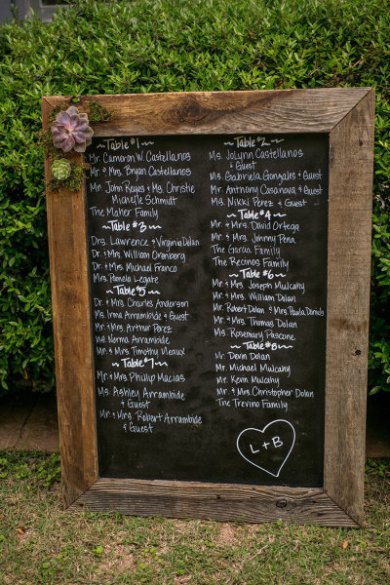 ~Table #1~
Mr Cameron W Castellanos
Mr + Mrs. Bryan Castellanos
Mr John Keyes + Ms. Christie
Michelle Schmidt
The Maher Family
~Table #3~
Drs. Lawrence + Virginia Dolan
Mr + Mrs William Orenberg
Dr + Mrs Michael Franco
Mrs Pamela Legate
~Table #5~
Dr + Mrs. Charles Anderson
Ms. Irma Arrambide + Guest
Mr + Mrs Arthur Perez
Ms Norma Arrambide
Mr + Mrs Timothy Vieaux
~Table #7~
Mr + Mrs Phillip Macias
Ms. Ashley Arrambide
+ Guest
Mr + Mrs. Robert Arrambide
+ Guest
~Table 2~
Ms. JoLynn Castellanos
+ Guest
Ms. Gabriela Gonzales + Guest
Mr. Anthony Casanova + Guest
Ms. Nikki Perez + Guest
~Table #4~
Mr + Mrs. David Ortega
Mr + Mrs. Johnny Pena
The Garcia Family
The Recinos Family
~Table #6~
Mr + Mrs Joseph Mulcahy
Mr + Mrs. William Dolan
Mr. Robert Dolan + Mrs Paula Daniels
Mr + Mrs. Thomas Dolan
Ms Rosemary Pascone
~Table #8~
Mr. Devin Dolan
Mr. Michael Mulcahy
Mr. Kevin Mulcahy
Mr + Mrs Christopher Dolan
The Trevino Family
L + B